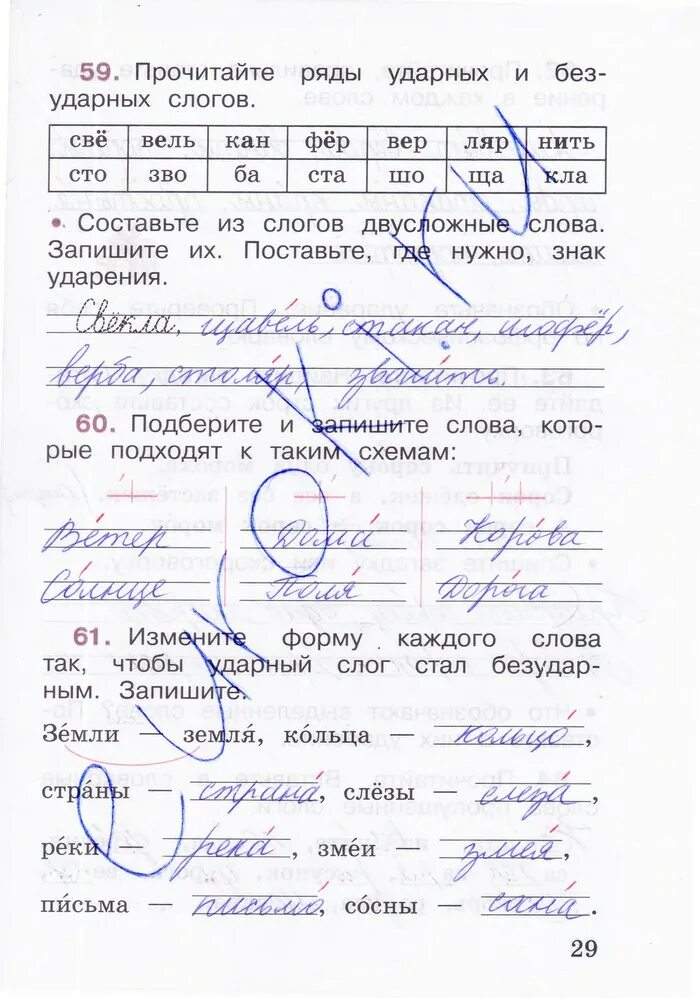 59. Прочитайте ряды ударных и без-
ударных слогов.
свё вель кан фёр вер ляр нить
сто зво ба ста шо ща кла
• Составьте из слогов двусложные слова.
Запишите их. Поставьте, где нужно, знак
ударения.
Свёкла, щаве́ль, стакан, шофёр,
верба, столя́р, звони́ть.
60. Подберите и запишите слова, кото-
рые подходят к таким схемам:
Ве́тер Дома́ Коро́ва
Со́лнце Поля Доро́га
61. Измените форму каждого слова
так, чтобы ударный слог стал безудар-
ным. Запишите.
Зе́мли — земля́, ко́льца — кольцо́,
стра́ны — страна́, слёзы — слеза́,
ре́ки — река́, зме́и — змея́,
пи́сьма — письмо́, со́сны — сана́.
29